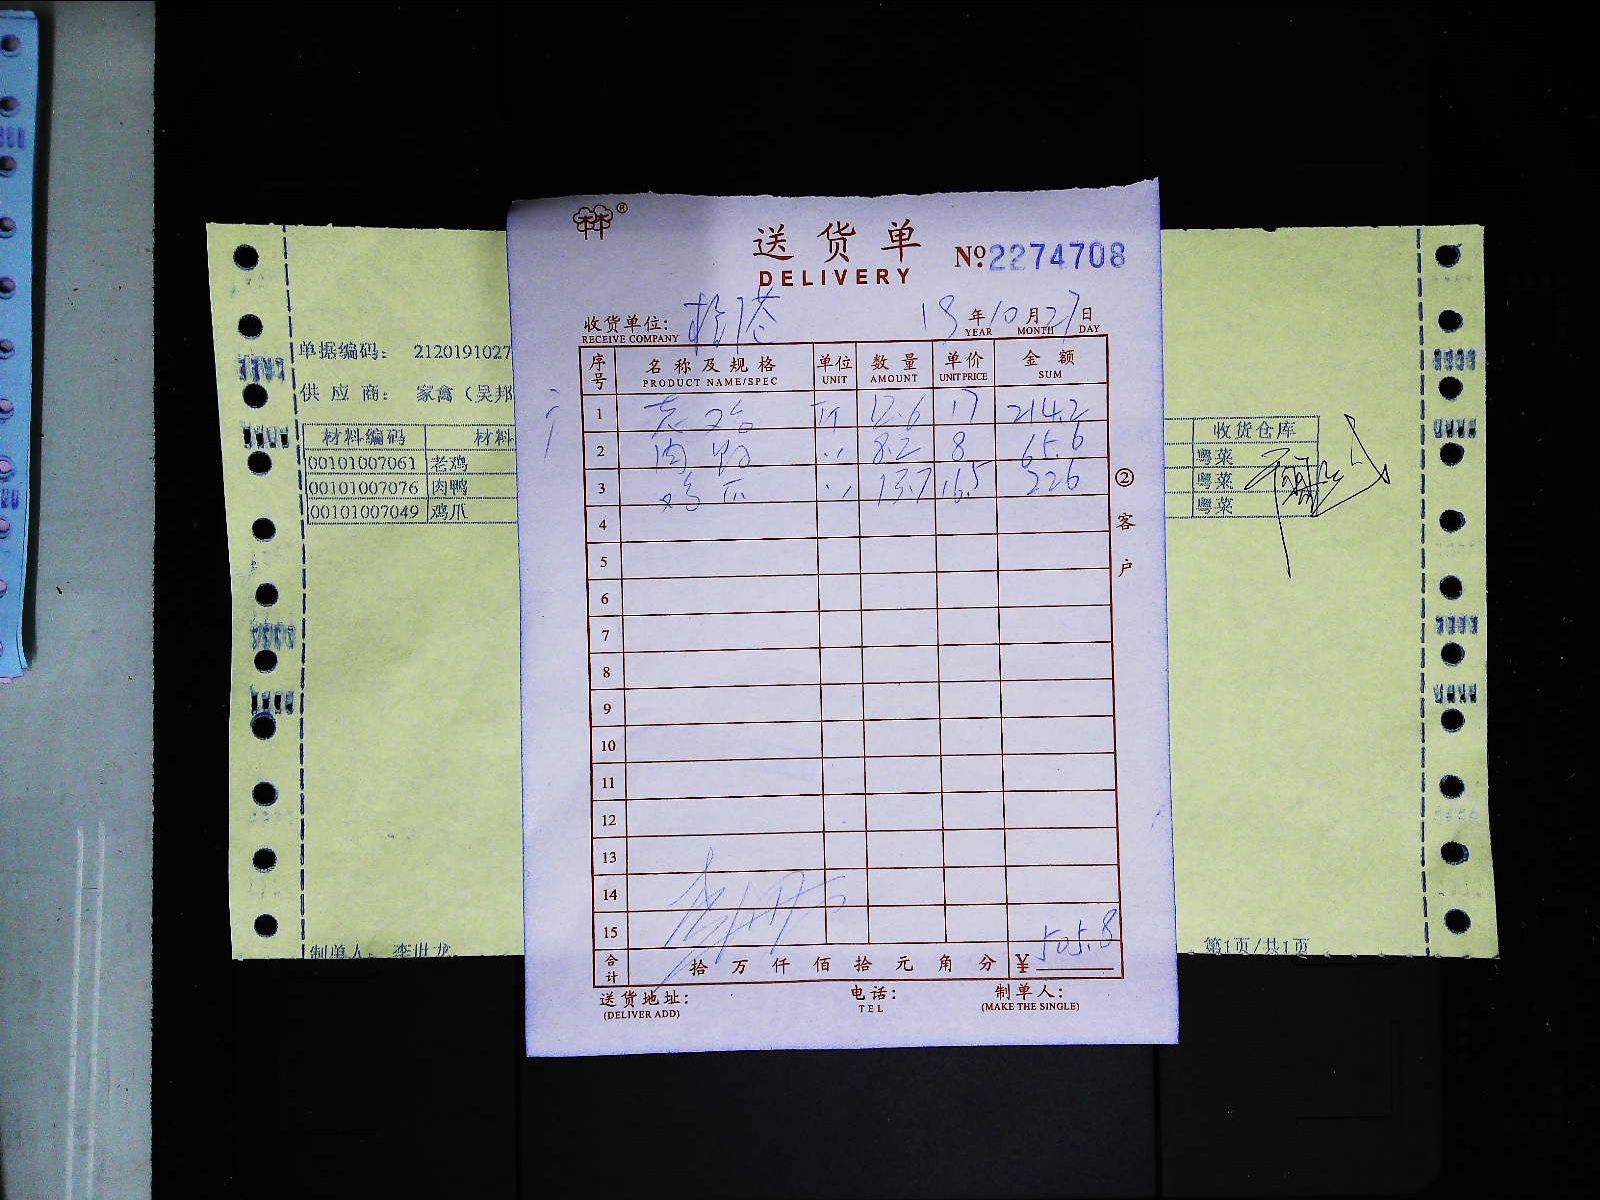 送货单
DELIVERY
№ 2274708
收货单位:
RECEIVE COMPANY
19年10月27日
YEAR MONTH DAY
序号 名称及规格 单位 数量 单价 金额
PRODUCT NAME/SPEC UNIT AMOUNT UNIT PRICE SUM
1 老鸡 斤 12.6 17 214.2
2 肉鸭 〃 8.2 8 65.6
3 鸡爪 〃 13.7 16.5 226
4
5
6
7
8
9
10
11
12
13
14
15 505.8
合计 拾万仟佰拾元角分 ¥
送货地址: 电话: 制单人:
(DELIVER ADD) TEL (MAKE THE SINGLE)
②客户
单据编码: 2120191027
供应商: 家禽(吴邦
材料编码 材料
00101007061 老鸡
00101007076 肉鸭
00101007049 鸡爪
收货仓库
粤菜
粤菜
粤菜
制单人: 李世龙
第1页/共1页